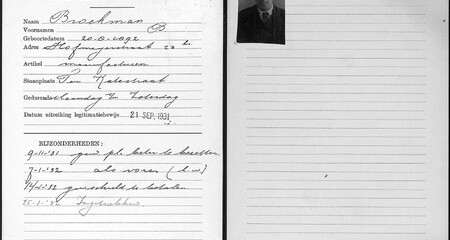 Naam Brockman
Voornamen B
Geboortedatum 20-8-1892
Adres Hofmeyrstraat
Artikel manufacturen
Staanplaats Ten Katestraat
Gedurende Maandag t/m Zaterdag
Datum uitreiking legitimatiebewijs 21 SEP. 1931
BIJZONDERHEDEN:
9-11-'31 pl. beter te bezetten
7-1-'32 als voren
14-1-'32 te betalen
25-1-'32 Ingetrokken